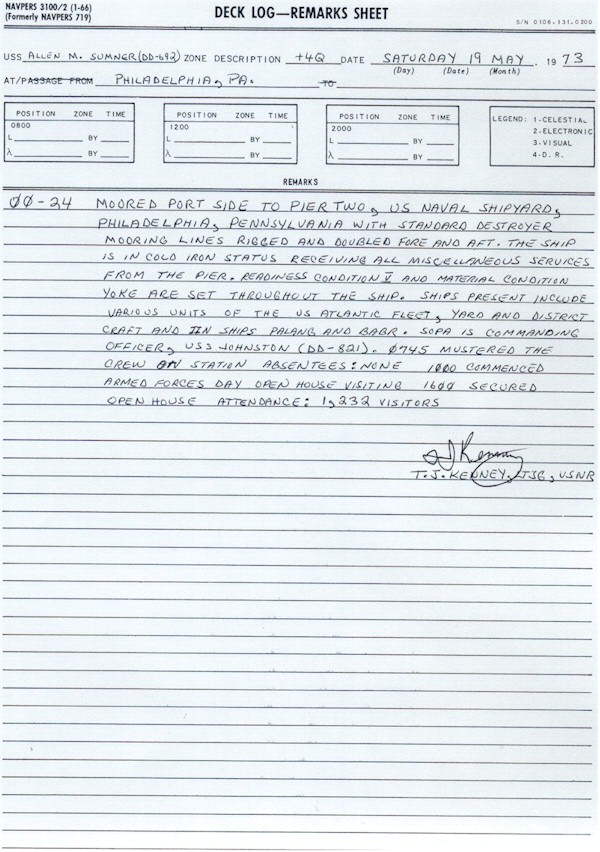 NAVPERS 3100/2 (1-66)
(Formerly NAVPERS 719)
DECK LOG—REMARKS SHEET
S/N 0106-131-0200
USS ALLEN M. SUMNER(DD-692) ZONE DESCRIPTION +4Q DATE SATURDAY 19 MAY, 1973
(Day) (Date) (Month)
AT/PASSAGE FROM PHILADELPHIA, PA. TO
POSITION ZONE TIME
0800
L BY
λ BY
POSITION ZONE TIME
1200
L BY
λ BY
POSITION ZONE TIME
2000
L BY
λ BY
LEGEND: 1-CELESTIAL
2-ELECTRONIC
3-VISUAL
4-D. R.
REMARKS
00-24 MOORED PORT SIDE TO PIER TWO, US NAVAL SHIPYARD,
PHILADELPHIA, PENNSYLVANIA WITH STANDARD DESTROYER
MOORING LINES RIGGED AND DOUBLED FORE AND AFT. THE SHIP
IS IN COLD IRON STATUS RECEIVING ALL MISCELLANEOUS SERVICES
FROM THE PIER. READINESS CONDITION V AND MATERIAL CONDITION
YOKE ARE SET THROUGHOUT THE SHIP. SHIPS PRESENT INCLUDE
VARIOUS UNITS OF THE US ATLANTIC FLEET, YARD AND DISTRICT
CRAFT AND IIN SHIPS PALANG AND BABR. SOPA IS COMMANDING
OFFICER, USS JOHNSTON (DD-821). 0745 MUSTERED THE
CREW ON STATION ABSENTEES: NONE 1000 COMMENCED
ARMED FORCES DAY OPEN HOUSE VISITING 1600 SECURED
OPEN HOUSE ATTENDANCE: 1,232 VISITORS
TJ Kenney
T. J. KENNEY, JTJG, USNR